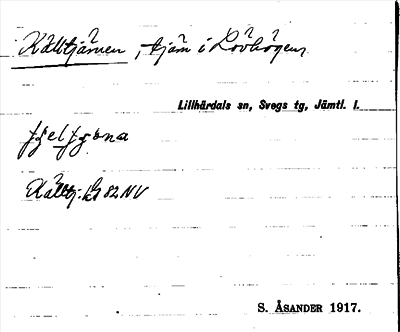 Källtjärnen, tjärn i Lövhögen
Lillhärdals sn, Svegs tg, Jämtl. l.
Källtj. 82 NV
S. ÅSANDER 1917.